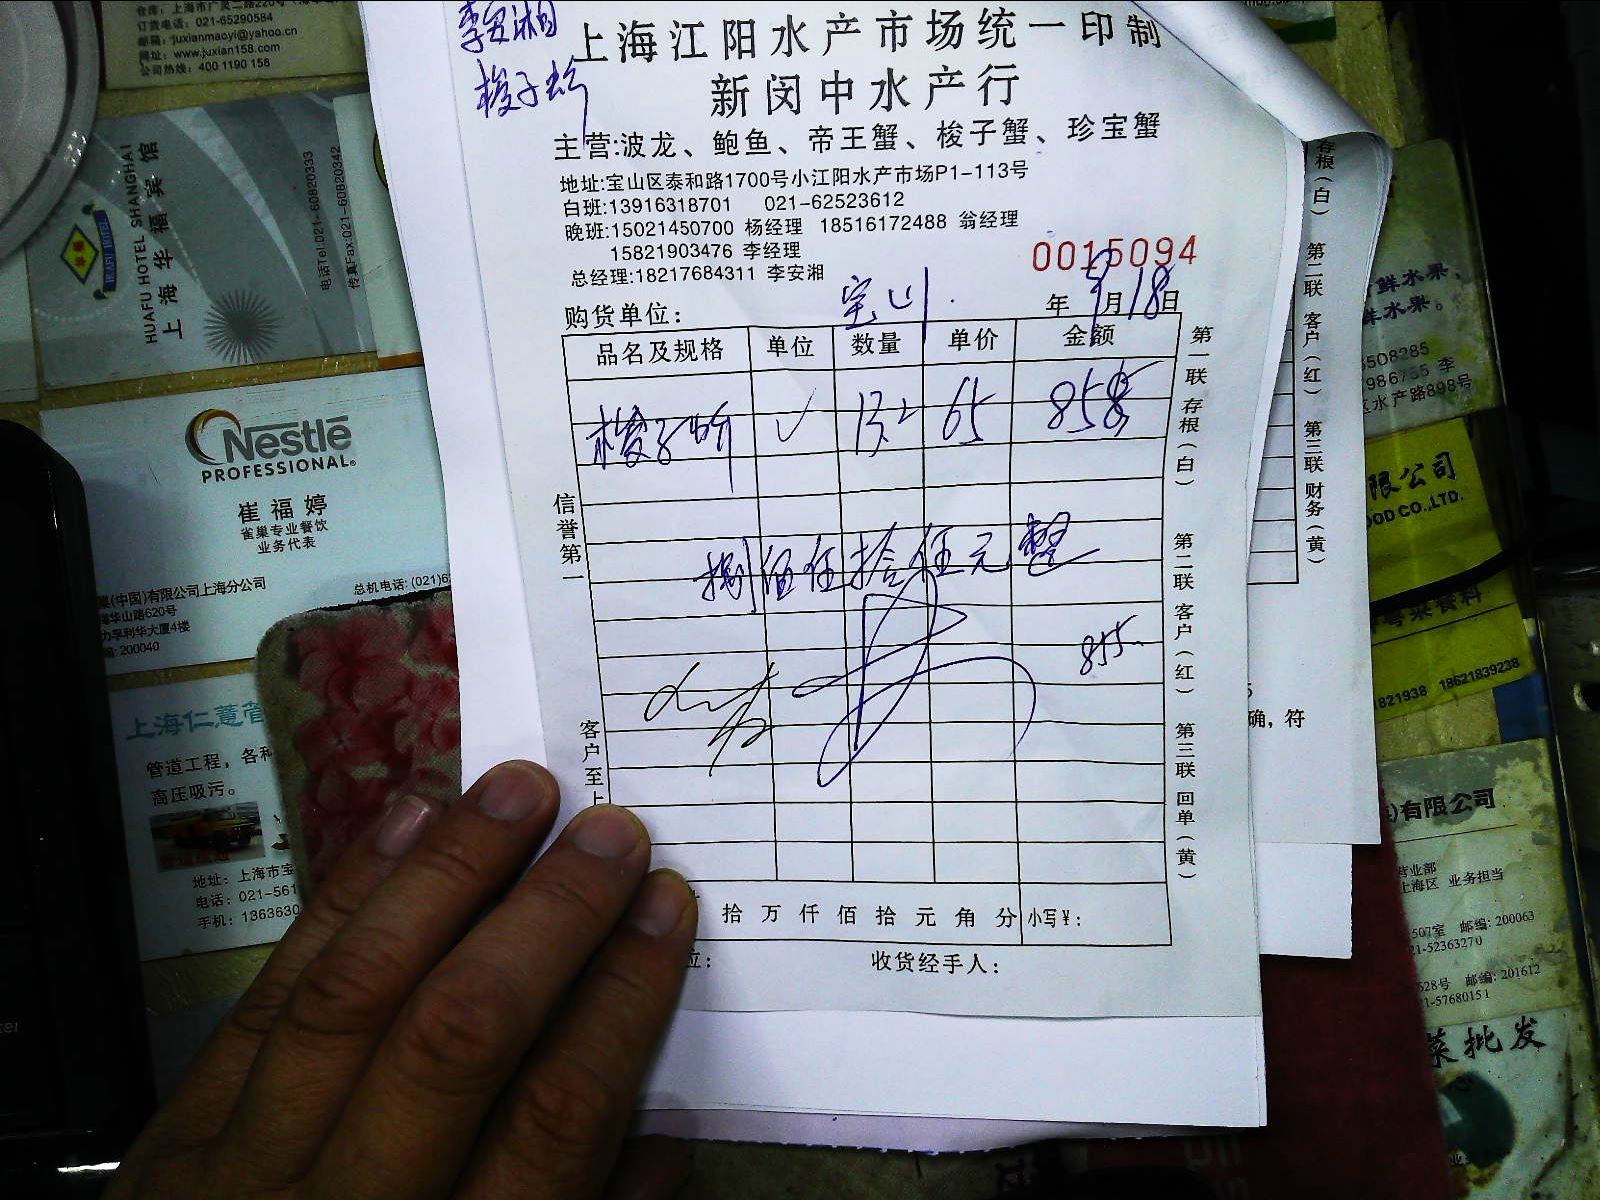 仓库：上海市广灵二路220号
订货电话：021-65290584
邮箱：juxianmaoyi@yahoo.cn
网址：www.juxian158.com
公司热线：400 1190 158
HUAFU HOTEL SHANGHAI
上海华福宾馆
HUAFU HOTEL
电话Tel:021-60820333
传真Fax:021-60820342
Nestlé
PROFESSIONAL
崔福婷
雀巢专业餐饮
业务代表
(中国)有限公司上海分公司
华山路620号
利华大厦4楼
200040
总机电话: (021)6
上海仁薏管
管道工程，各种
高压吸污。
地址：上海市宝
电话：021-561
手机：1363630
李安湘
梭子蟹
上海江阳水产市场统一印制
新闵中水产行
主营:波龙、鲍鱼、帝王蟹、梭子蟹、珍宝蟹
地址:宝山区泰和路1700号小江阳水产市场P1-113号
白班:13916318701 021-62523612
晚班:15021450700 杨经理 18516172488 翁经理
15821903476 李经理
总经理:18217684311 李安湘
0015094
购货单位： 宝山 年 9月18日
品名及规格 单位 数量 单价 金额
梭子蟹 13.2 65 858
捌佰伍拾伍元整
855
信誉第一
客户至上
第一联 存根（白） 第二联 客户（红） 第三联 回单（黄）
拾 万 仟 佰 拾 元 角 分 小写¥：
位：
收货经手人：
存根（白） 第二联 客户（红） 第三联 财务（黄）
确，符
鲜水果、
鲜水果。
5508285
986755 李
区水产路898号
限公司
OOD CO.,LTD.
821938 18621839238
有限公司
营业部
上海区 业务担当
507室 邮编: 200063
21-52363270
528号 邮编: 201612
21-57680151
菜批发